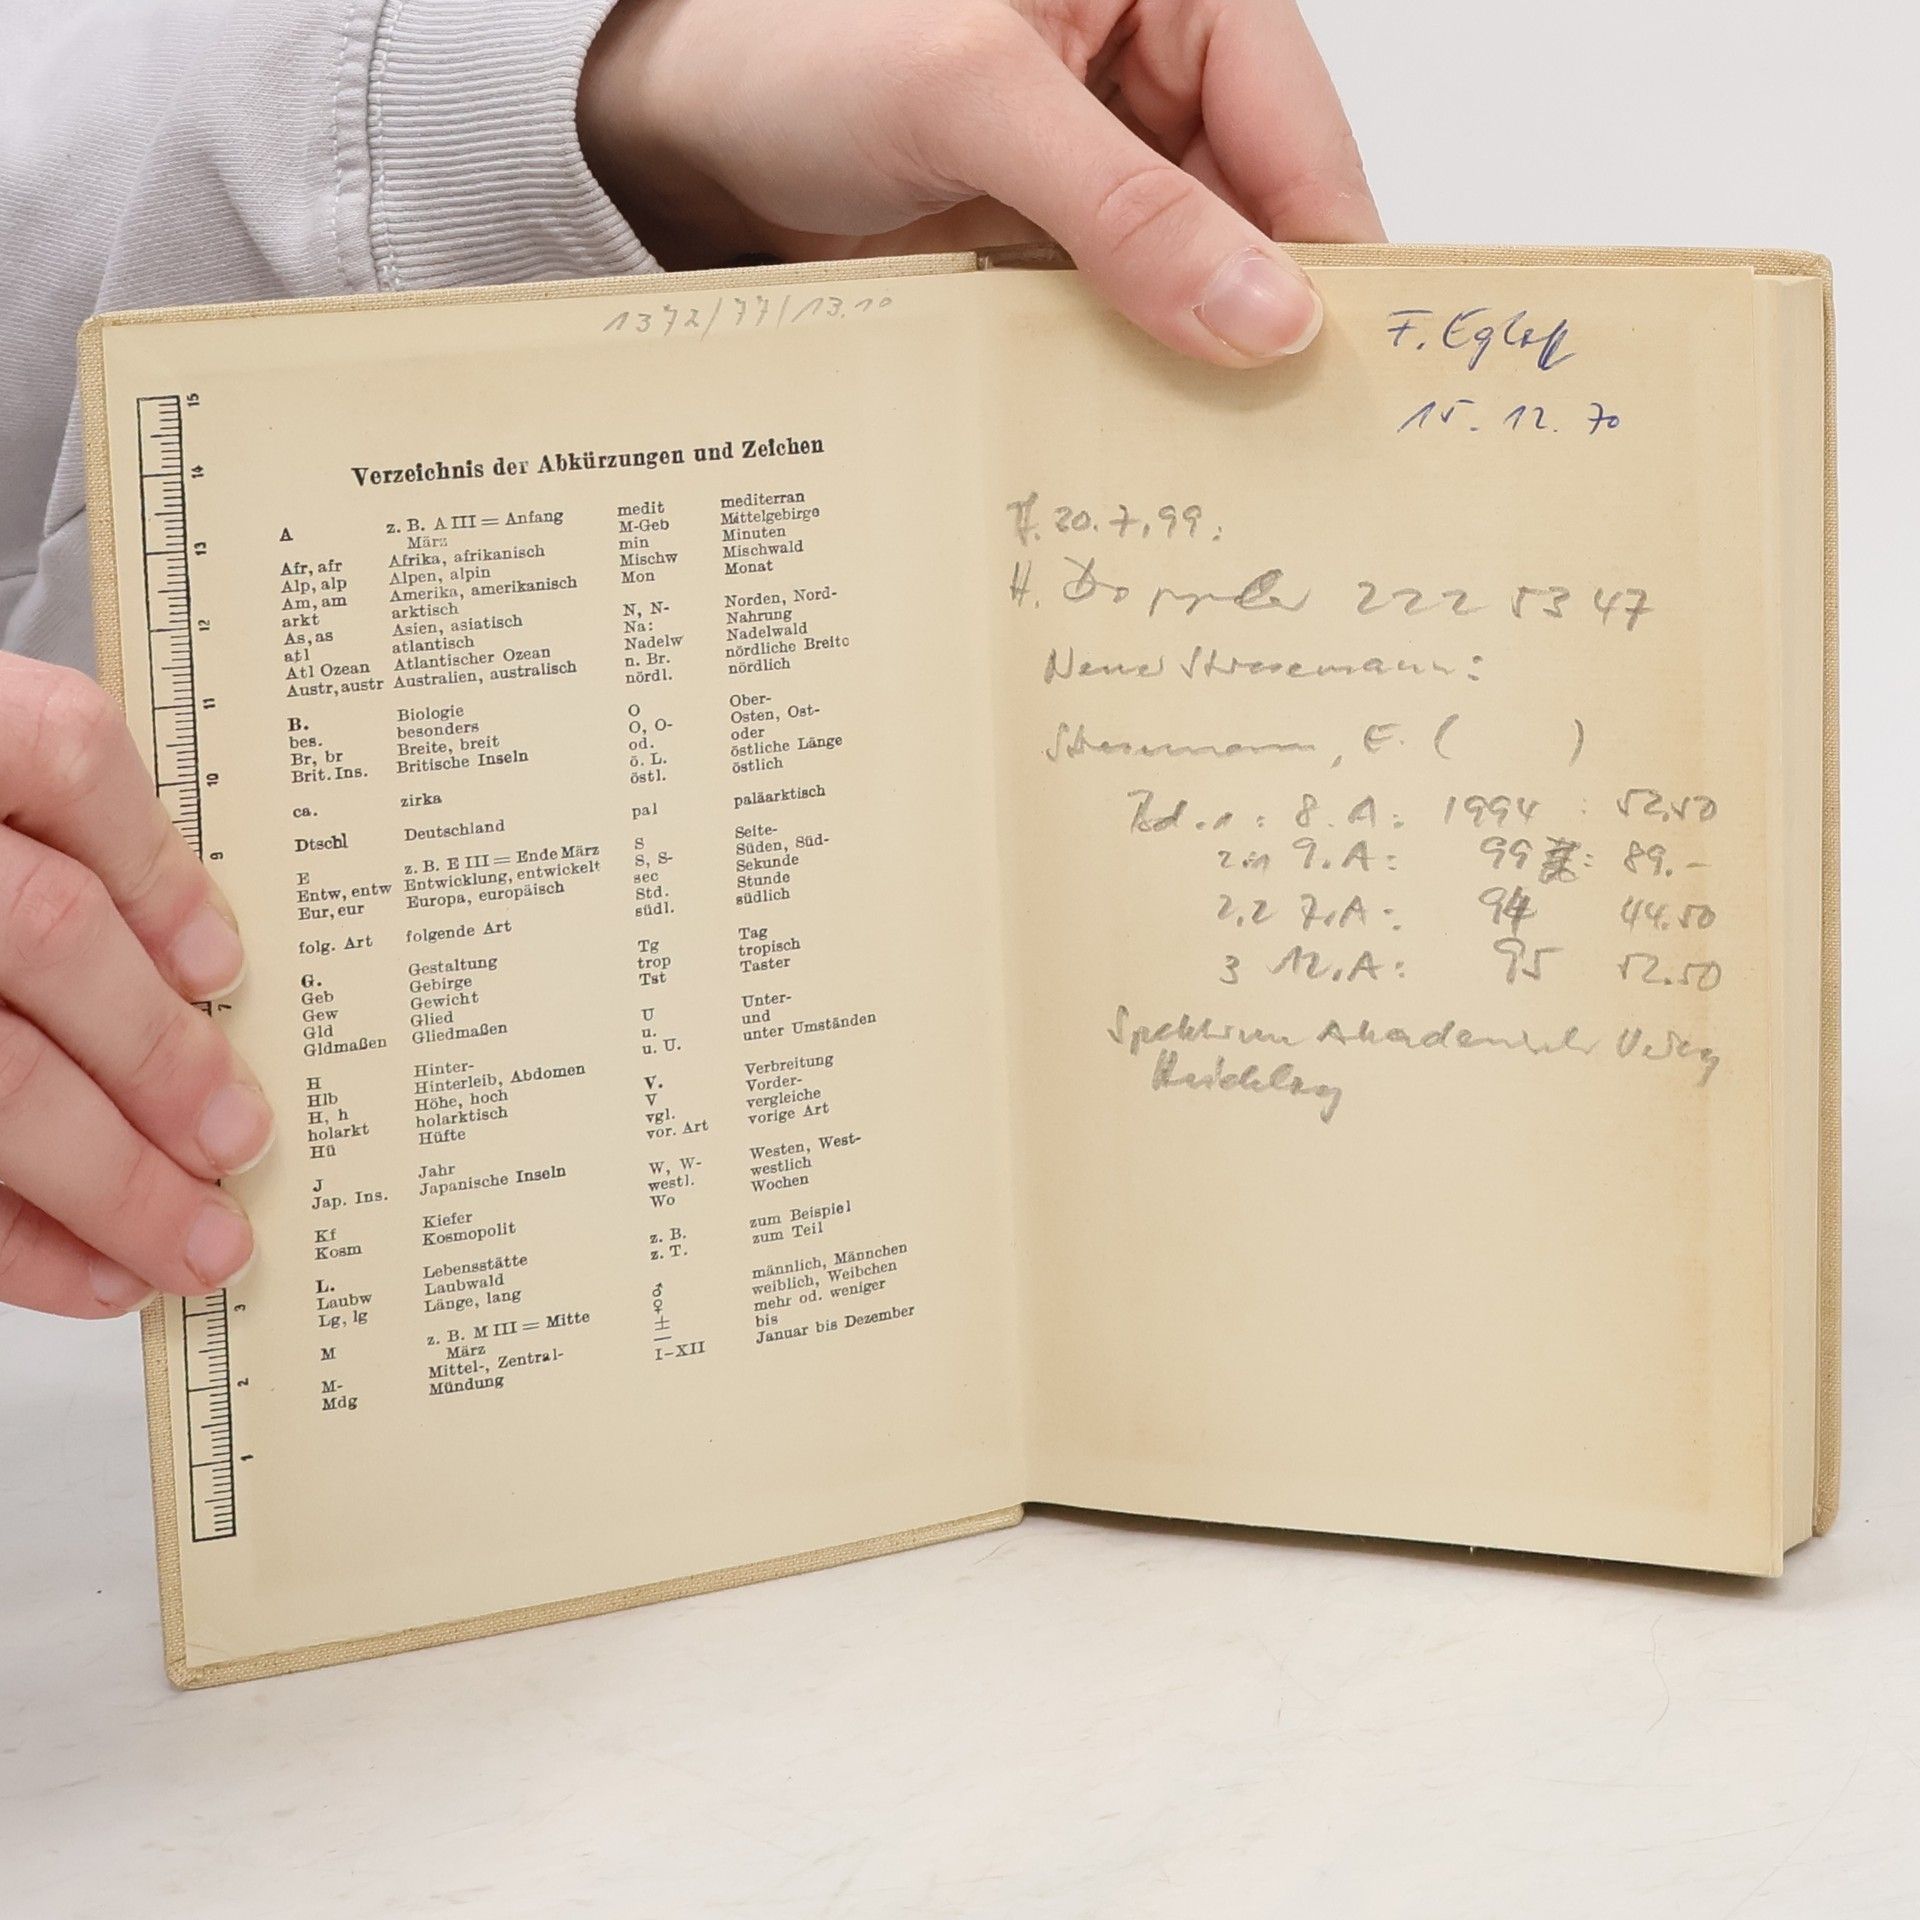 1372/77/13.10
15
14
13
12
11
10
9
7
3
2
1
Verzeichnis der Abkürzungen und Zeichen
A z. B. A III = Anfang
März
Afr, afr Afrika, afrikanisch
Alp, alp Alpen, alpin
Am, am Amerika, amerikanisch
arkt arktisch
As, as Asien, asiatisch
atl atlantisch
Atl Ozean Atlantischer Ozean
Austr, austr Australien, australisch
B. Biologie
bes. besonders
Br, br Breite, breit
Brit. Ins. Britische Inseln
ca. zirka
Dtschl Deutschland
E z. B. E III = Ende März
Entw, entw Entwicklung, entwickelt
Eur, eur Europa, europäisch
folg. Art folgende Art
G. Gestaltung
Geb Gebirge
Gew Gewicht
Gld Glied
Gldmaßen Gliedmaßen
H Hinter-
Hlb Hinterleib, Abdomen
H, h Höhe, hoch
holarkt holarktisch
Hü Hüfte
J Jahr
Jap. Ins. Japanische Inseln
Kf Kiefer
Kosm Kosmopolit
L. Lebensstätte
Laubw Laubwald
Lg, lg Länge, lang
M z. B. M III = Mitte
März
M- Mittel-, Zentral-
Mdg Mündung
medit mediterran
M-Geb Mittelgebirge
min Minuten
Mischw Mischwald
Mon Monat
N, N- Norden, Nord-
Na: Nahrung
Nadelw Nadelwald
n. Br. nördliche Breite
nördl. nördlich
O Ober-
O, O- Osten, Ost-
od. oder
ö. L. östliche Länge
östl. östlich
pal paläarktisch
S Seite-
S, S- Süden, Süd-
sec Sekunde
Std. Stunde
südl. südlich
Tg Tag
trop tropisch
Tst Taster
U Unter-
u. und
u. U. unter Umständen
V. Verbreitung
V Vorder-
vgl. vergleiche
vor. Art vorige Art
W, W- Westen, West-
westl. westlich
Wo Wochen
z. B. zum Beispiel
z. T. zum Teil
♂ männlich, Männchen
♀ weiblich, Weibchen
± mehr od. weniger
— bis
I–XII Januar bis Dezember
F. Egloff
15. 12. 70
20. 7. 99:
H. Doppler 222 53 47
Neuer Stresemann:
Stresemann, E. ( )
Bd. 1: 8. A: 1994 : 52.50
9. A: 99 : 89.–
2.2 7. A: 94 44.50
3 12. A: 95 52.50
Spektrum Akademischer Verlag
Heidelberg